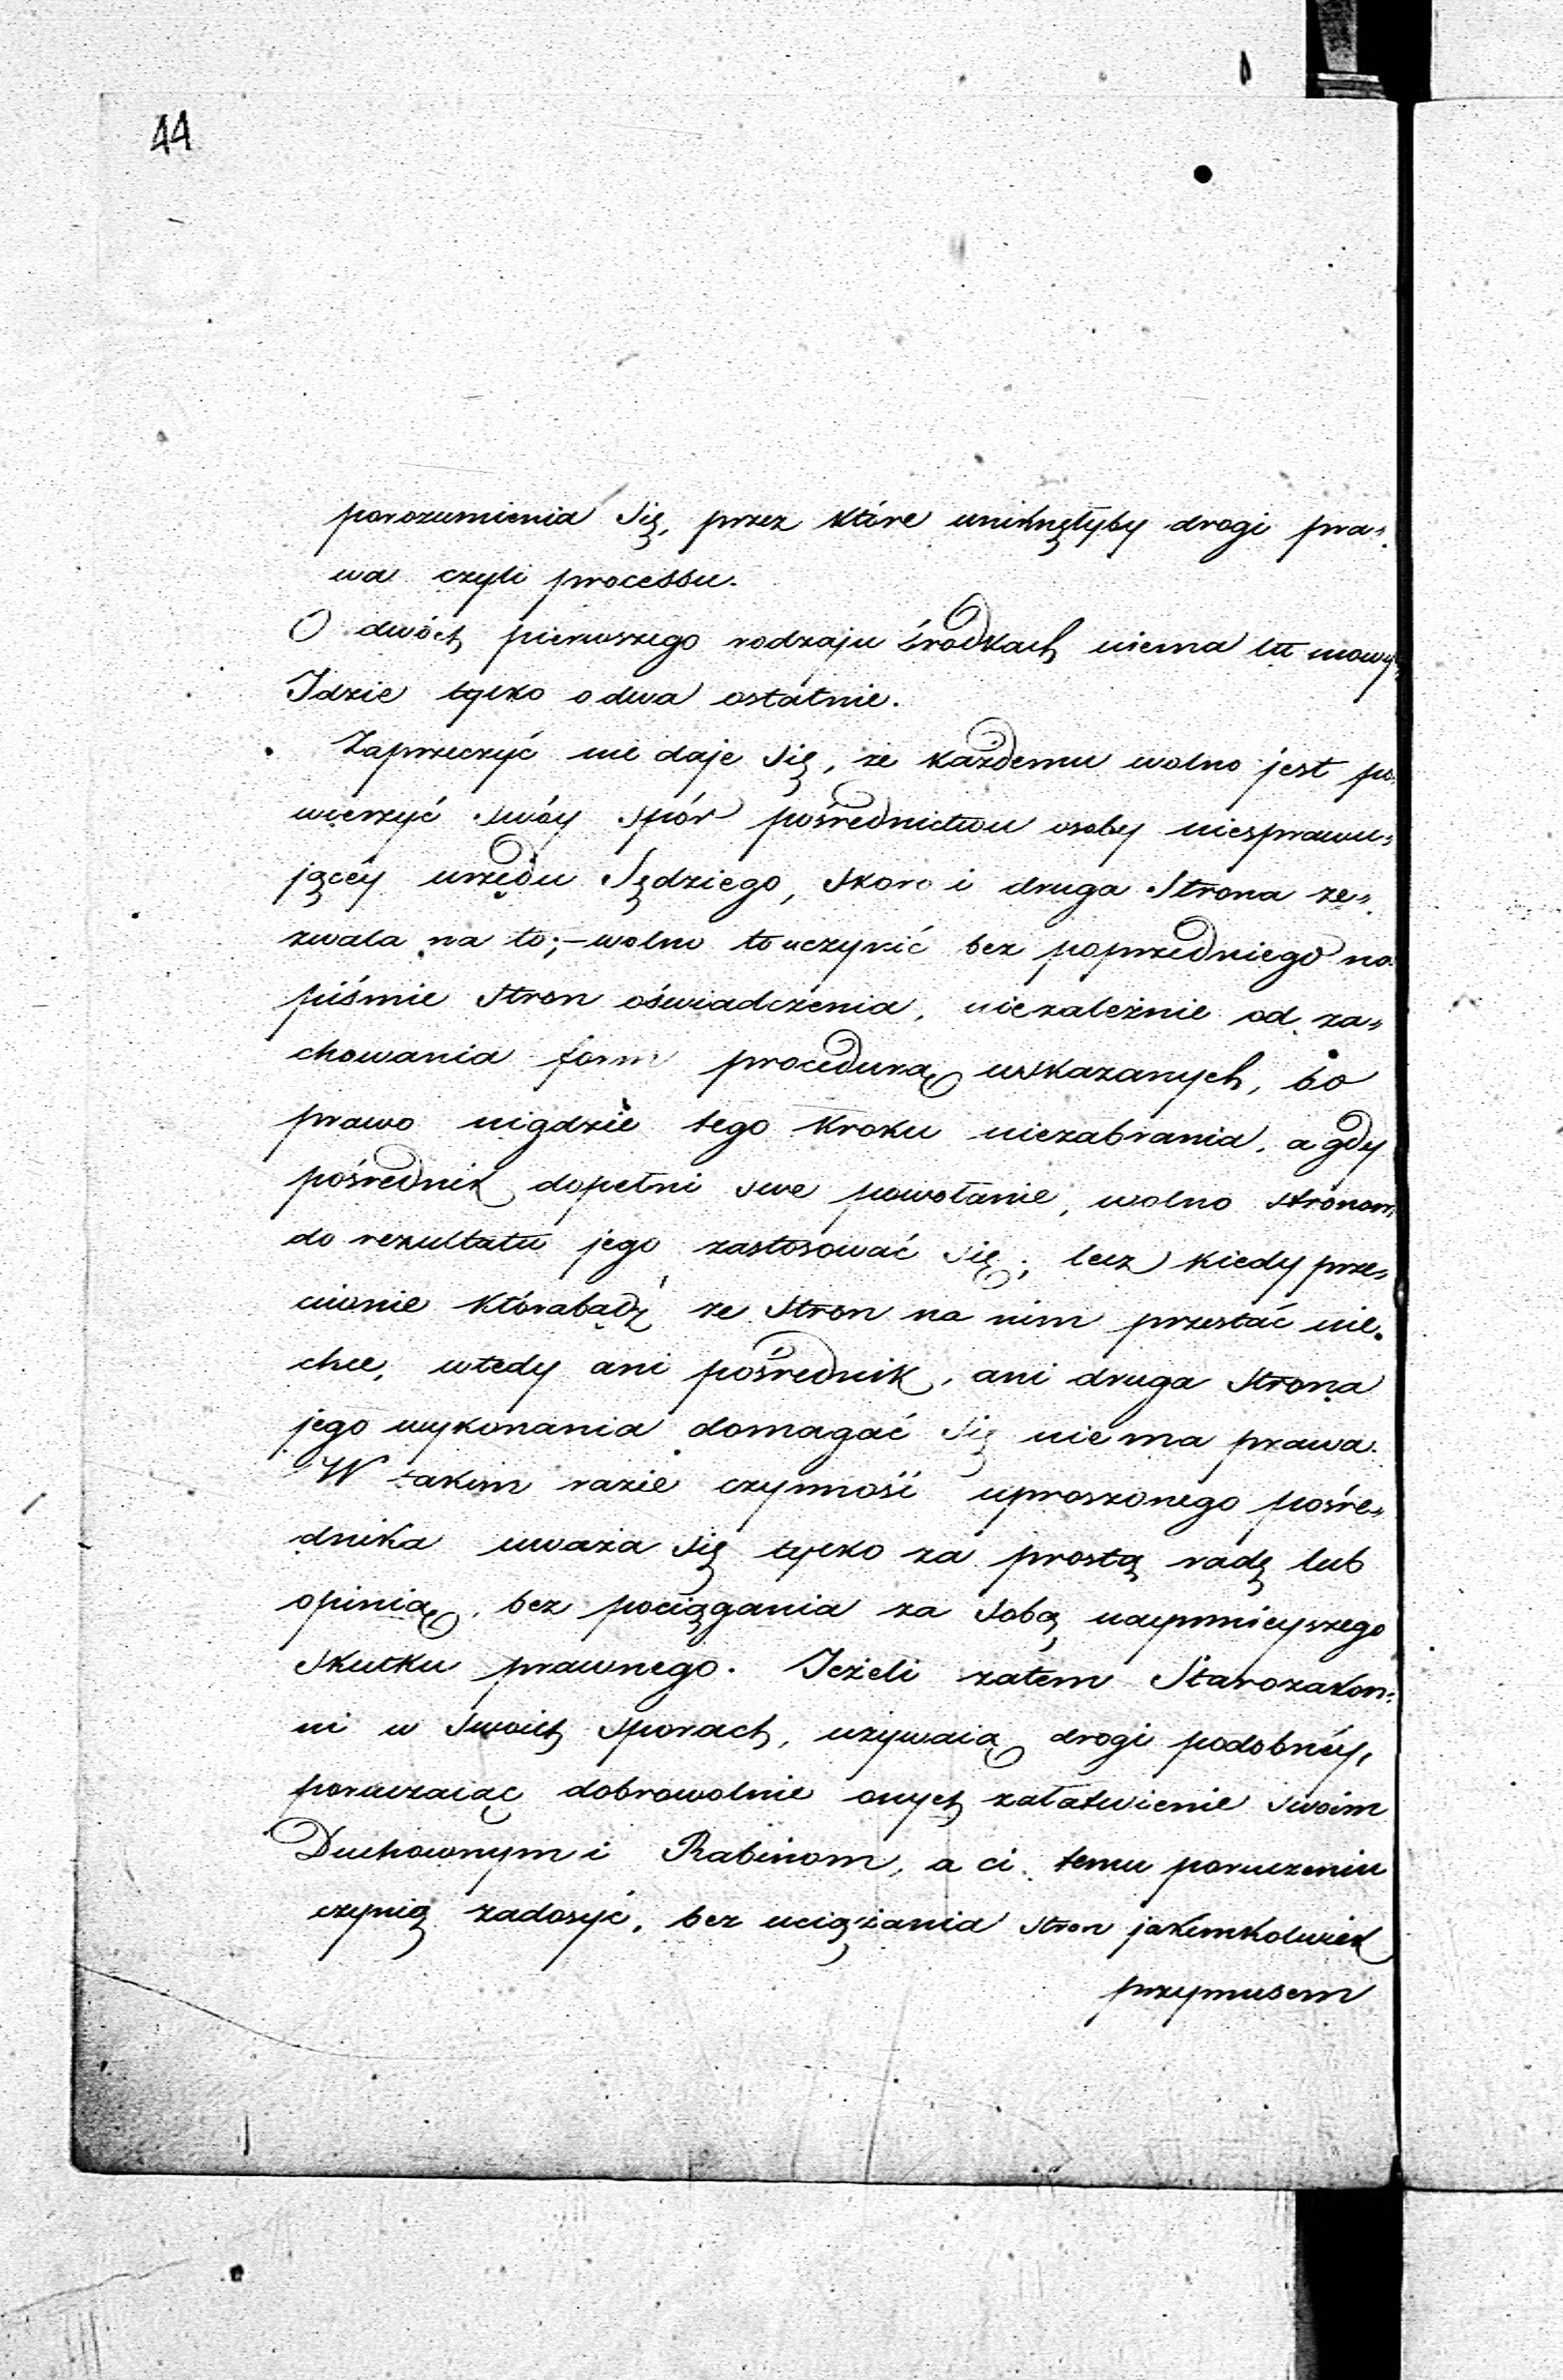 44
porozumienia się, przez które uniknęłyby drogi pra„
wa czyli processu.
O dwóch pierwszego rodzaju środkach niema tu mowy,
Idzie tylko o dwa ostatnie.
Zaprzeczyć nie daje się, że każdemu wolno jest po„
wierzyć swóy spór pośrednictwu osoby niesprawu„
jącéy urzędu Sędziego, skoro i druga Strona ze„
zwala na to; – wolno to uczynić bez poprzedniego na
piśmie Stron oświadczenia, niezależnie od za„
chowania form procedurą wskazanych, bo
prawo nigdzie tego kroku niezabrania, a gdy
pośrednik dopełni swe powołanie, wolno stronom
do rezultatu jego zastosować się; lecz kiedy prze„
ciwnie którabądź ze Stron na nim przestać nie„
chce, wtedy ani pośrednik, ani druga Strona
jego wykonania domagać się niema prawa.
W takim razie czynność uproszonego pośre„
dnika uważa się tylko za prostą radę lub
opinią, bez pociągania za sobą naymnieyszego
skutku prawnego. Jeżeli zatem Starozakon„
ni w swoich sporach, używaią drogi podobnéy,
poruczaiąc dobrowolnie onych załatwienie swoim
Duchownym i Rabinom, a ci temu poruczeniu
czynią zadosyć, bez uciążania stron jakimkolwiek
przymusem